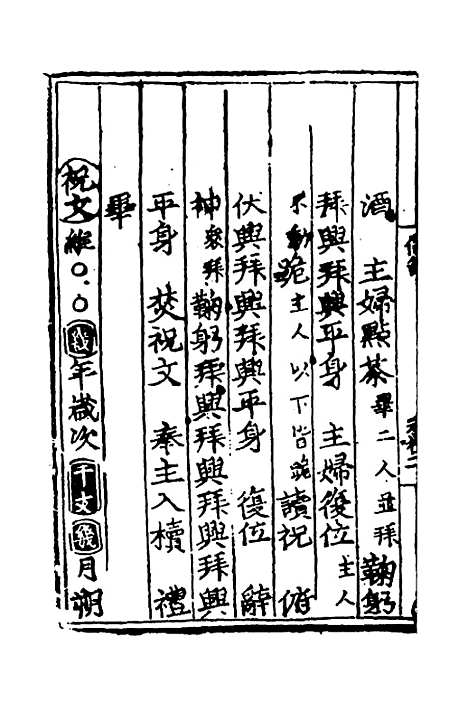 酒　主婦點茶畢二人並拜鞠躬
拜興拜興平身　主婦復位主人
不動跪主人以下皆跪讀祝　俯
伏興拜興拜興平身　復位　辭
神衆拜鞠躬拜興拜興拜興拜興
平身　焚祝文　奉主入櫝　禮
畢
祝文維○○幾年歲次干支幾月朔